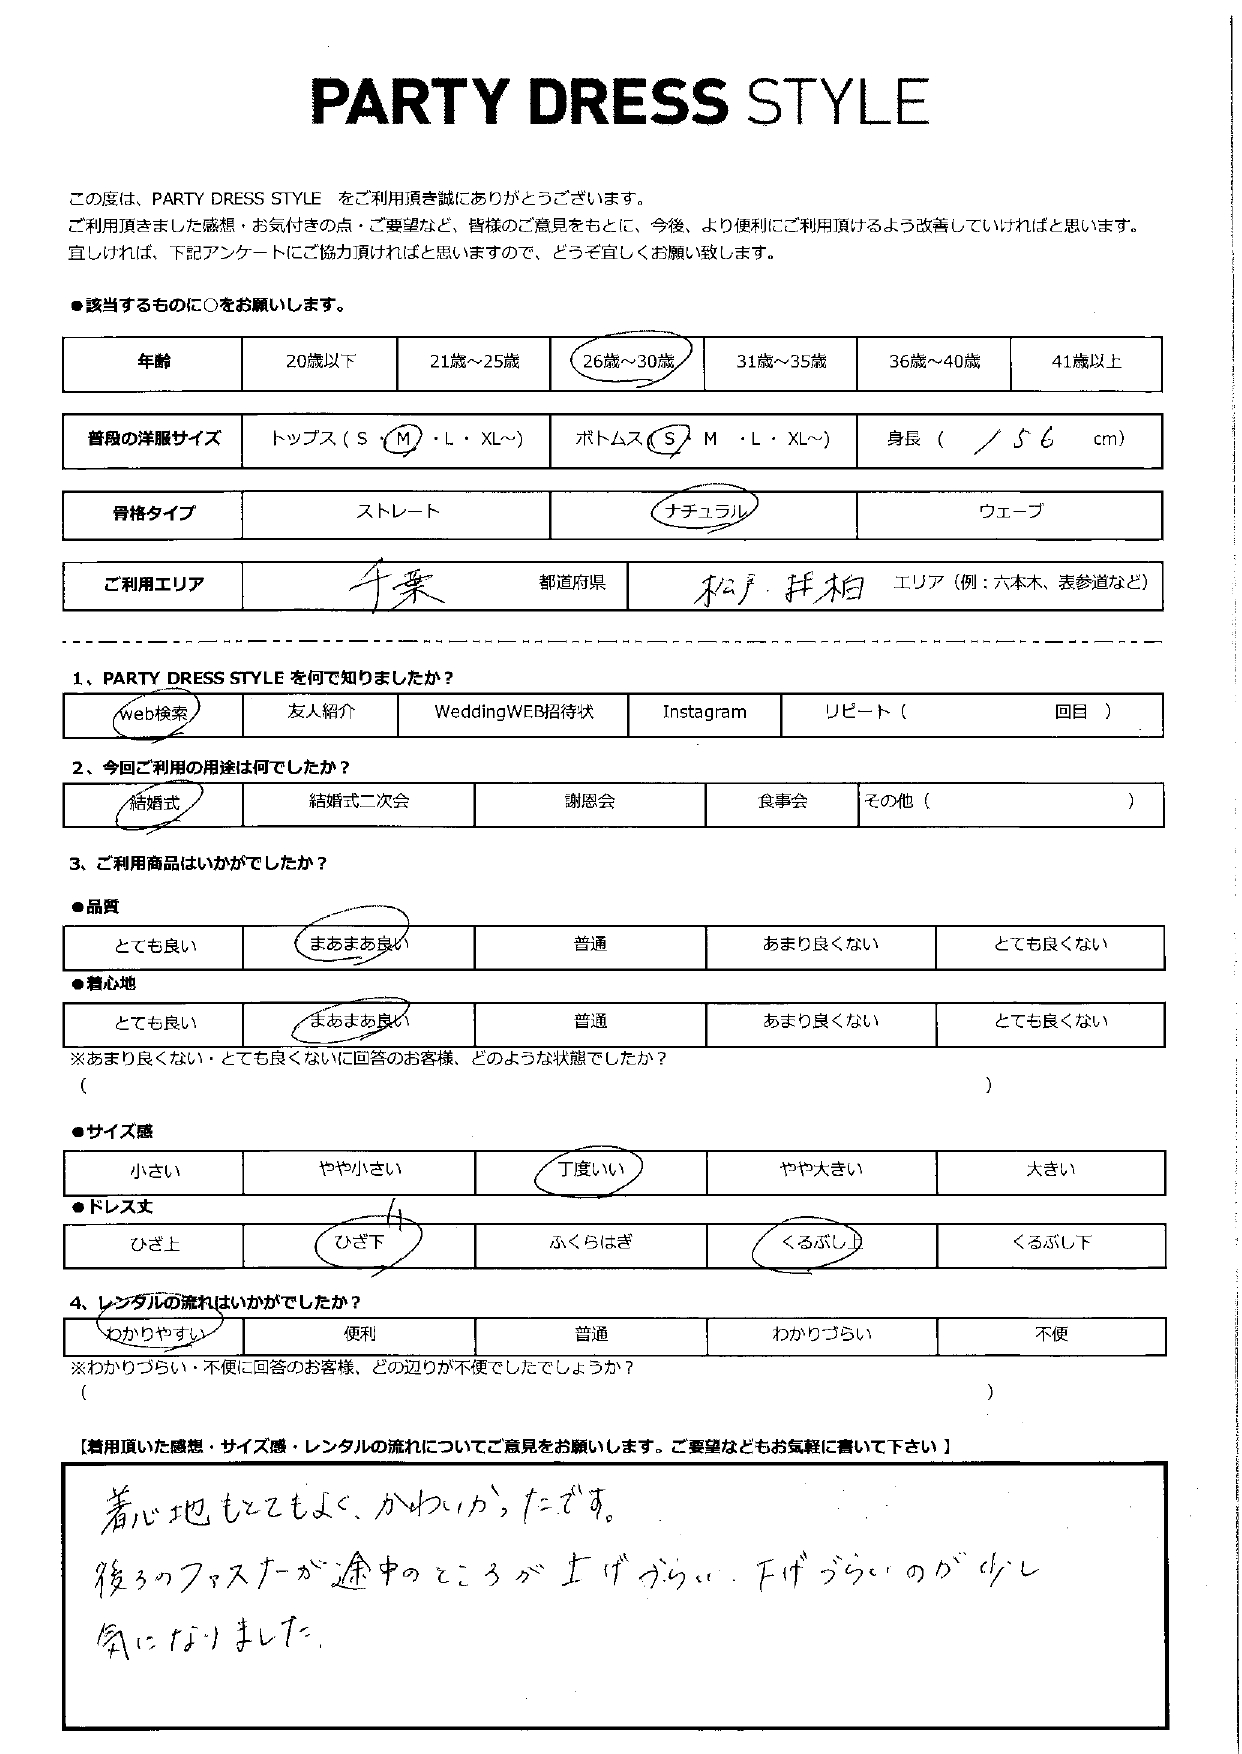 PARTY DRESS STYLE
この度は、PARTY DRESS STYLE　をご利用頂き誠にありがとうございます。
ご利用頂きました感想・お気付きの点・ご要望など、皆様のご意見をもとに、今後、より便利にご利用頂けるよう改善していければと思います。
宜しければ、下記アンケートにご協力頂ければと思いますので、どうぞ宜しくお願い致します。
●該当するものに○をお願いします。
年齢 20歳以下 21歳～25歳 26歳～30歳 31歳～35歳 36歳～40歳 41歳以上
普段の洋服サイズ トップス ( S ・ M ・ L ・ XL～) ボトムス ( S ・ M ・ L ・ XL～) 身長 ( 156 cm)
骨格タイプ ストレート ナチュラル ウェーブ
ご利用エリア 千葉 都道府県 松戸・柏 エリア（例：六本木、表参道など）
1、PARTY DRESS STYLE を何で知りましたか？
web検索 友人紹介 WeddingWEB招待状 Instagram リピート（ 回目 ）
2、今回ご利用の用途は何でしたか？
結婚式 結婚式二次会 謝恩会 食事会 その他（ ）
3、ご利用商品はいかがでしたか？
●品質
とても良い まあまあ良い 普通 あまり良くない とても良くない
●着心地
とても良い まあまあ良い 普通 あまり良くない とても良くない
※あまり良くない・とても良くないに回答のお客様、どのような状態でしたか？
（ ）
●サイズ感
小さい やや小さい 丁度いい やや大きい 大きい
●ドレス丈
ひざ上 ひざ下 ふくらはぎ くるぶし上 くるぶし下
4、レンタルの流れはいかがでしたか？
わかりやすい 便利 普通 わかりづらい 不便
※わかりづらい・不便に回答のお客様、どの辺りが不便でしたでしょうか？
（ ）
【着用頂いた感想・サイズ感・レンタルの流れについてご意見をお願いします。ご要望などもお気軽に書いて下さい 】
着心地もとてもよく、かわいかったです。
後ろのファスナーが途中のところが上げづらい、下げづらいのが少し
気になりました。